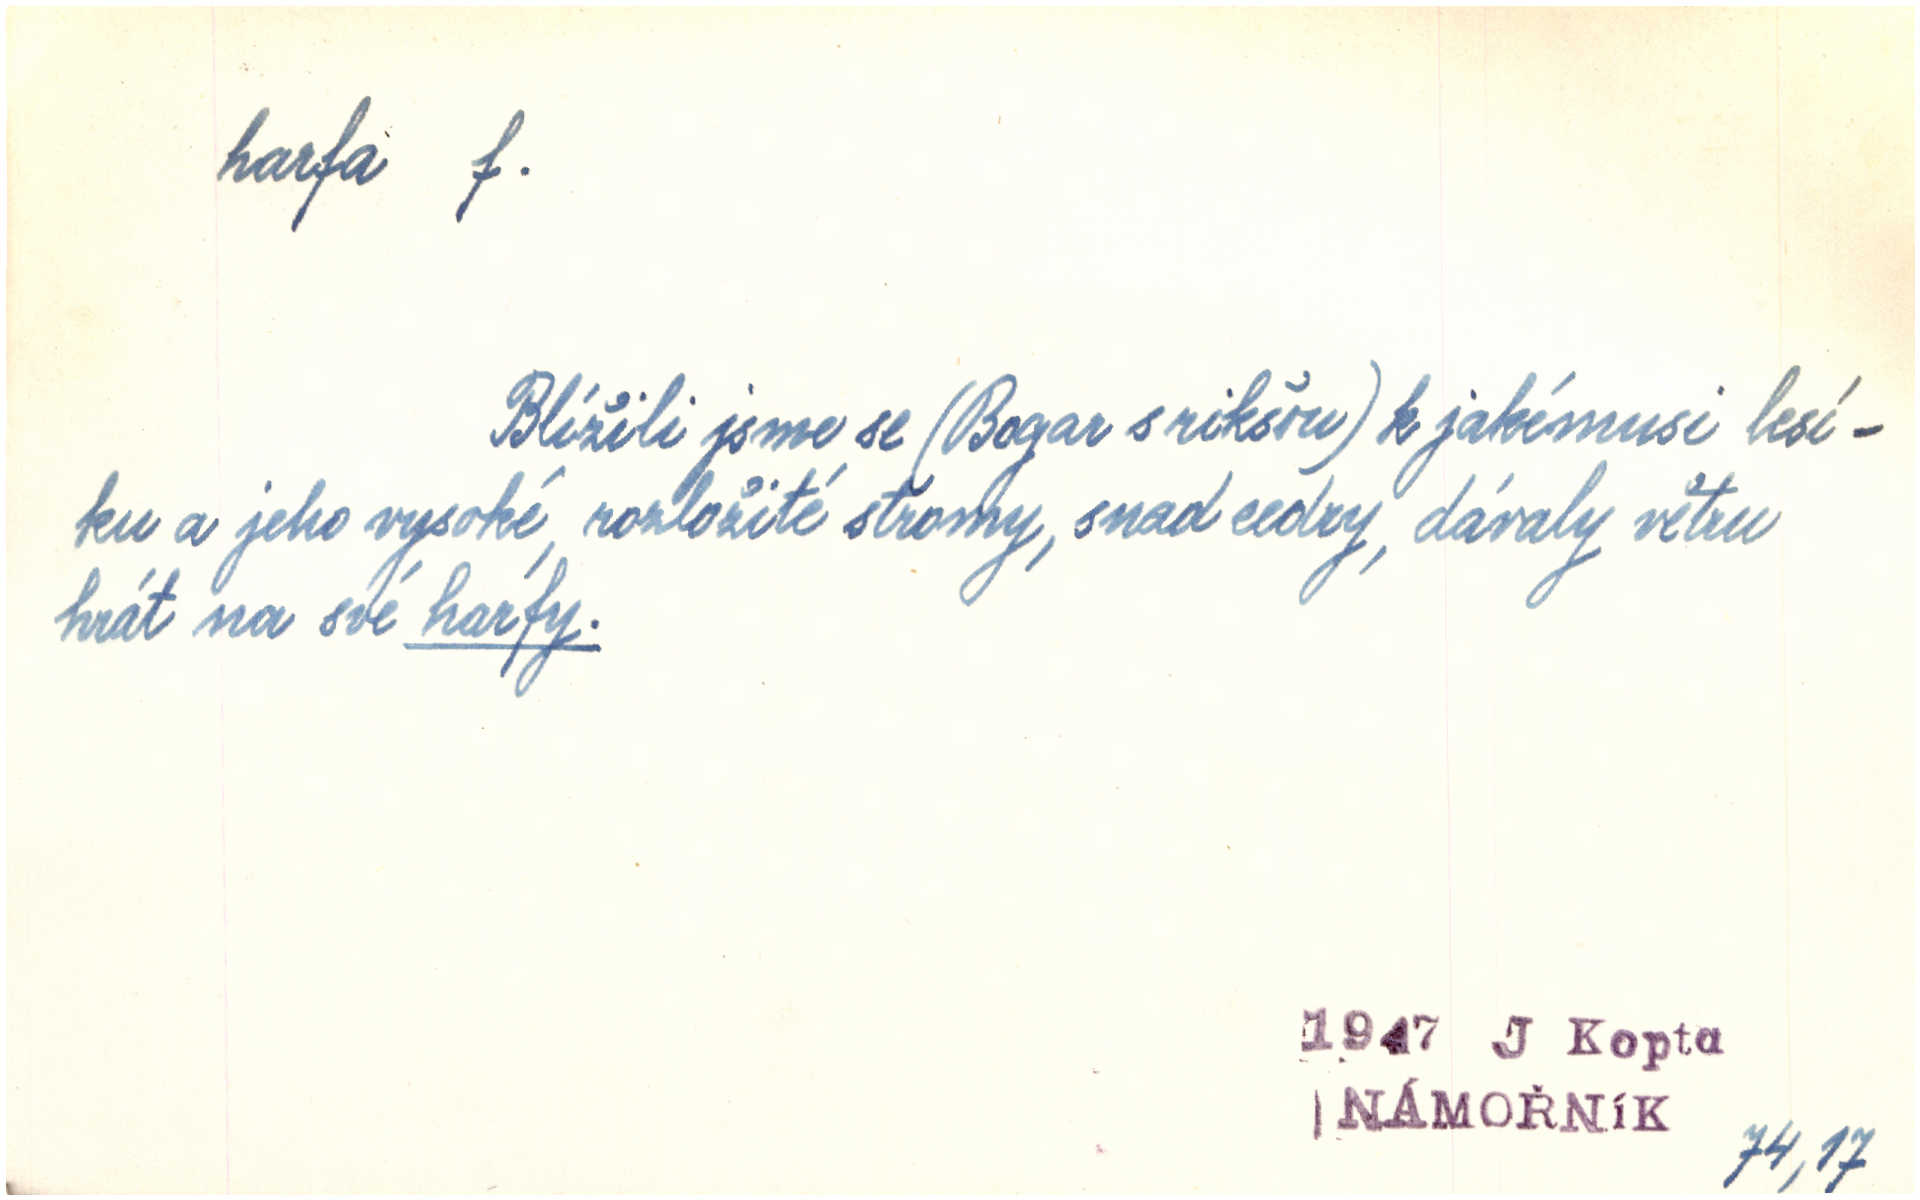 harfa f.
Blížili jsme se (Bogar s rikšou) k jakémusi lesí-
ku a jeho vysoké, rozložité stromy, snad cedry, dávaly větru
hrát na své harfy.
1947 J Kopta
NÁMOŘNíK
74,17